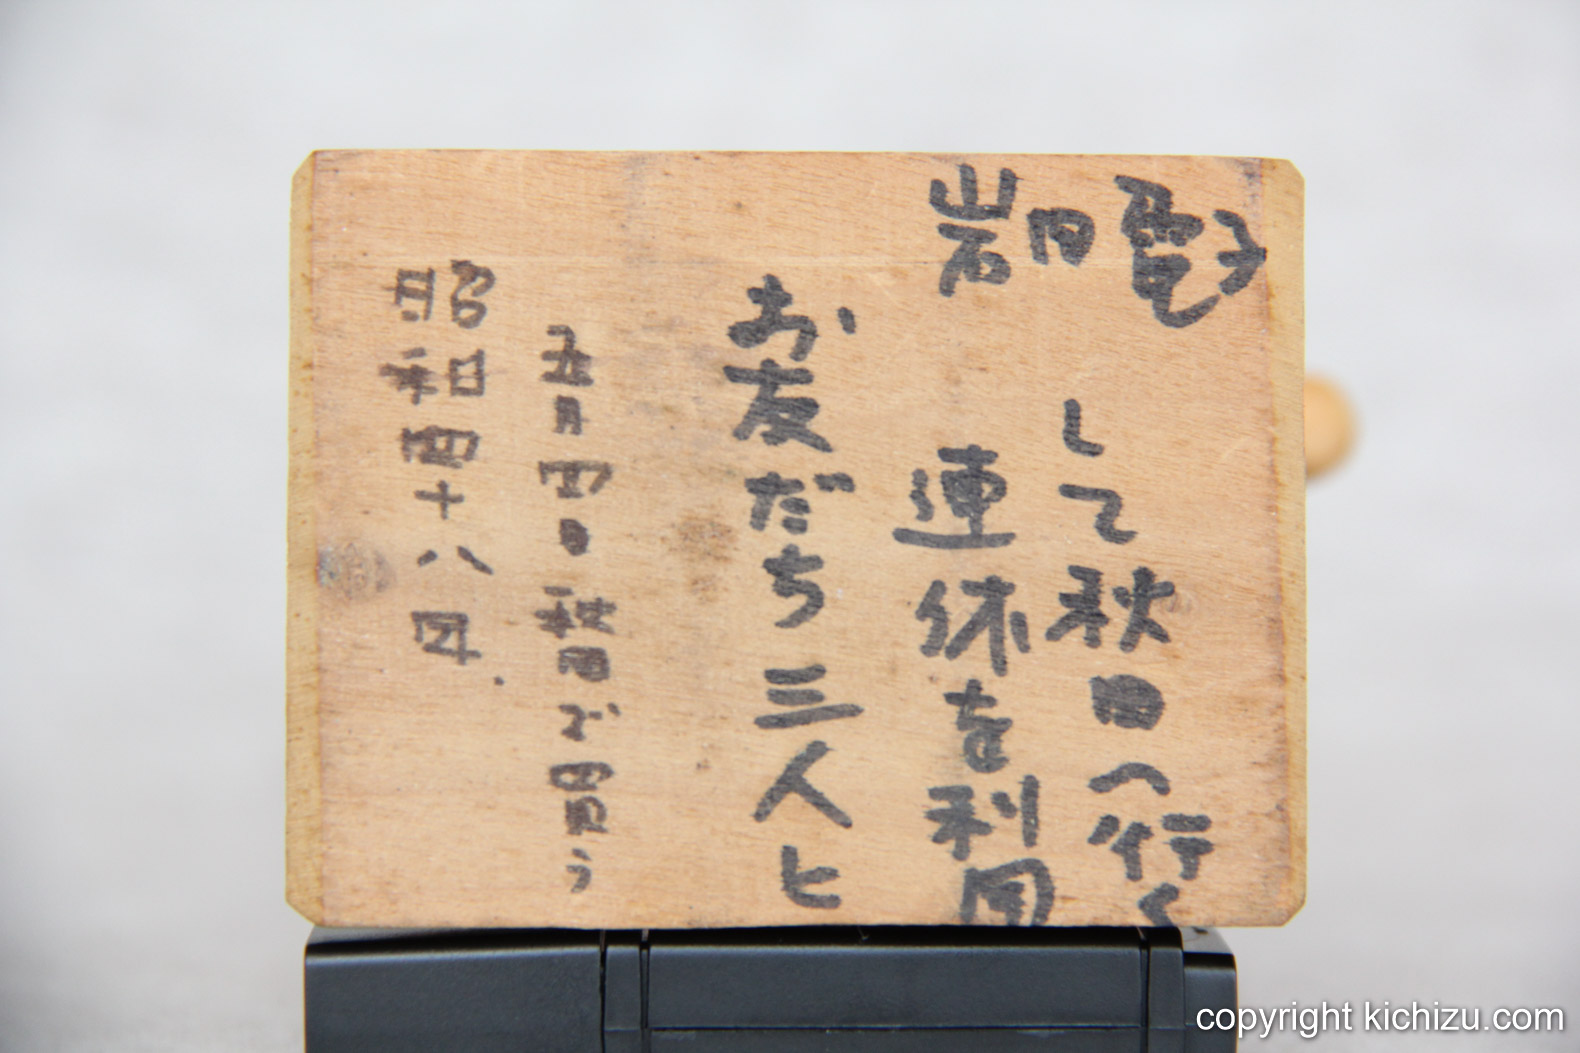 昭和四十八年
五月四日秋田で買う
お友だち三人と
連休を利用
して秋田へ行く
岩田電子
copyright kichizu.com